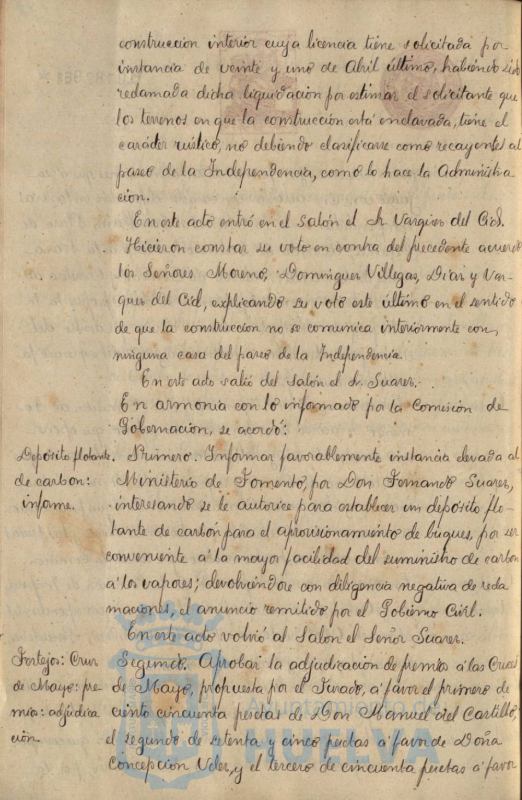 construccion interior cuya licencia tiene solicitada por
instancia de veinte y uno de Abril último, habiendo sido
reclamada dicha liquidacion por estimar el solicitante que
los terrenos en que la construccion está enclavada, tiene el
carácter rústico, no debiendo clasificarse como recayentes al
paseo de la Independencia, como lo hace la Administra
cion.
En este acto entró en el salón el Sr. Vazques del Cid.
Hicieron constar su voto en contra del precedente acuerdo
los Señores Moreno, Dominguez Villegas, Diaz y Vaz-
ques del Cid, explicando su voto este último en el sentido
de que la construccion no se comunica interiormente con
ninguna casa del paseo de la Independencia.
En este acto salió del salón el Sr. Suarez.
En armonia con lo informado por la Comisión de
Gobernacion, se acordó:
Depósito flotante
de carbon:
informe.
Primero. Informar favorablemente instancia elevada al
Ministerio de Fomento, por Don Fernando Suarez,
interesando se le autorice para establecer un depósito flo-
tante de carbón para el aprovisionamiento de buques, por ser
conveniente á la mayor facilidad del suministro de carbon
á los vapores; devolviéndose con diligencia negativa de recla
maciones, el anuncio remitido por el Gobierno Civil.
En este acto volvió al salon el Señor Suarez.
Festejos: Cruz
de Mayo: pre-
mios: adjudica
cion.
Segundo. Aprobar la adjudicacion de premios á las Cruces
de Mayo, propuesta por el Jurado, á favor el primero de
ciento cincuenta pesetas de Don Manuel del Castillo,
el segundo de setenta y cinco pesetas á favor de Doña
Concepcion y el tercero de cincuenta pesetas á favor
Ayuntamiento de
HUELVA